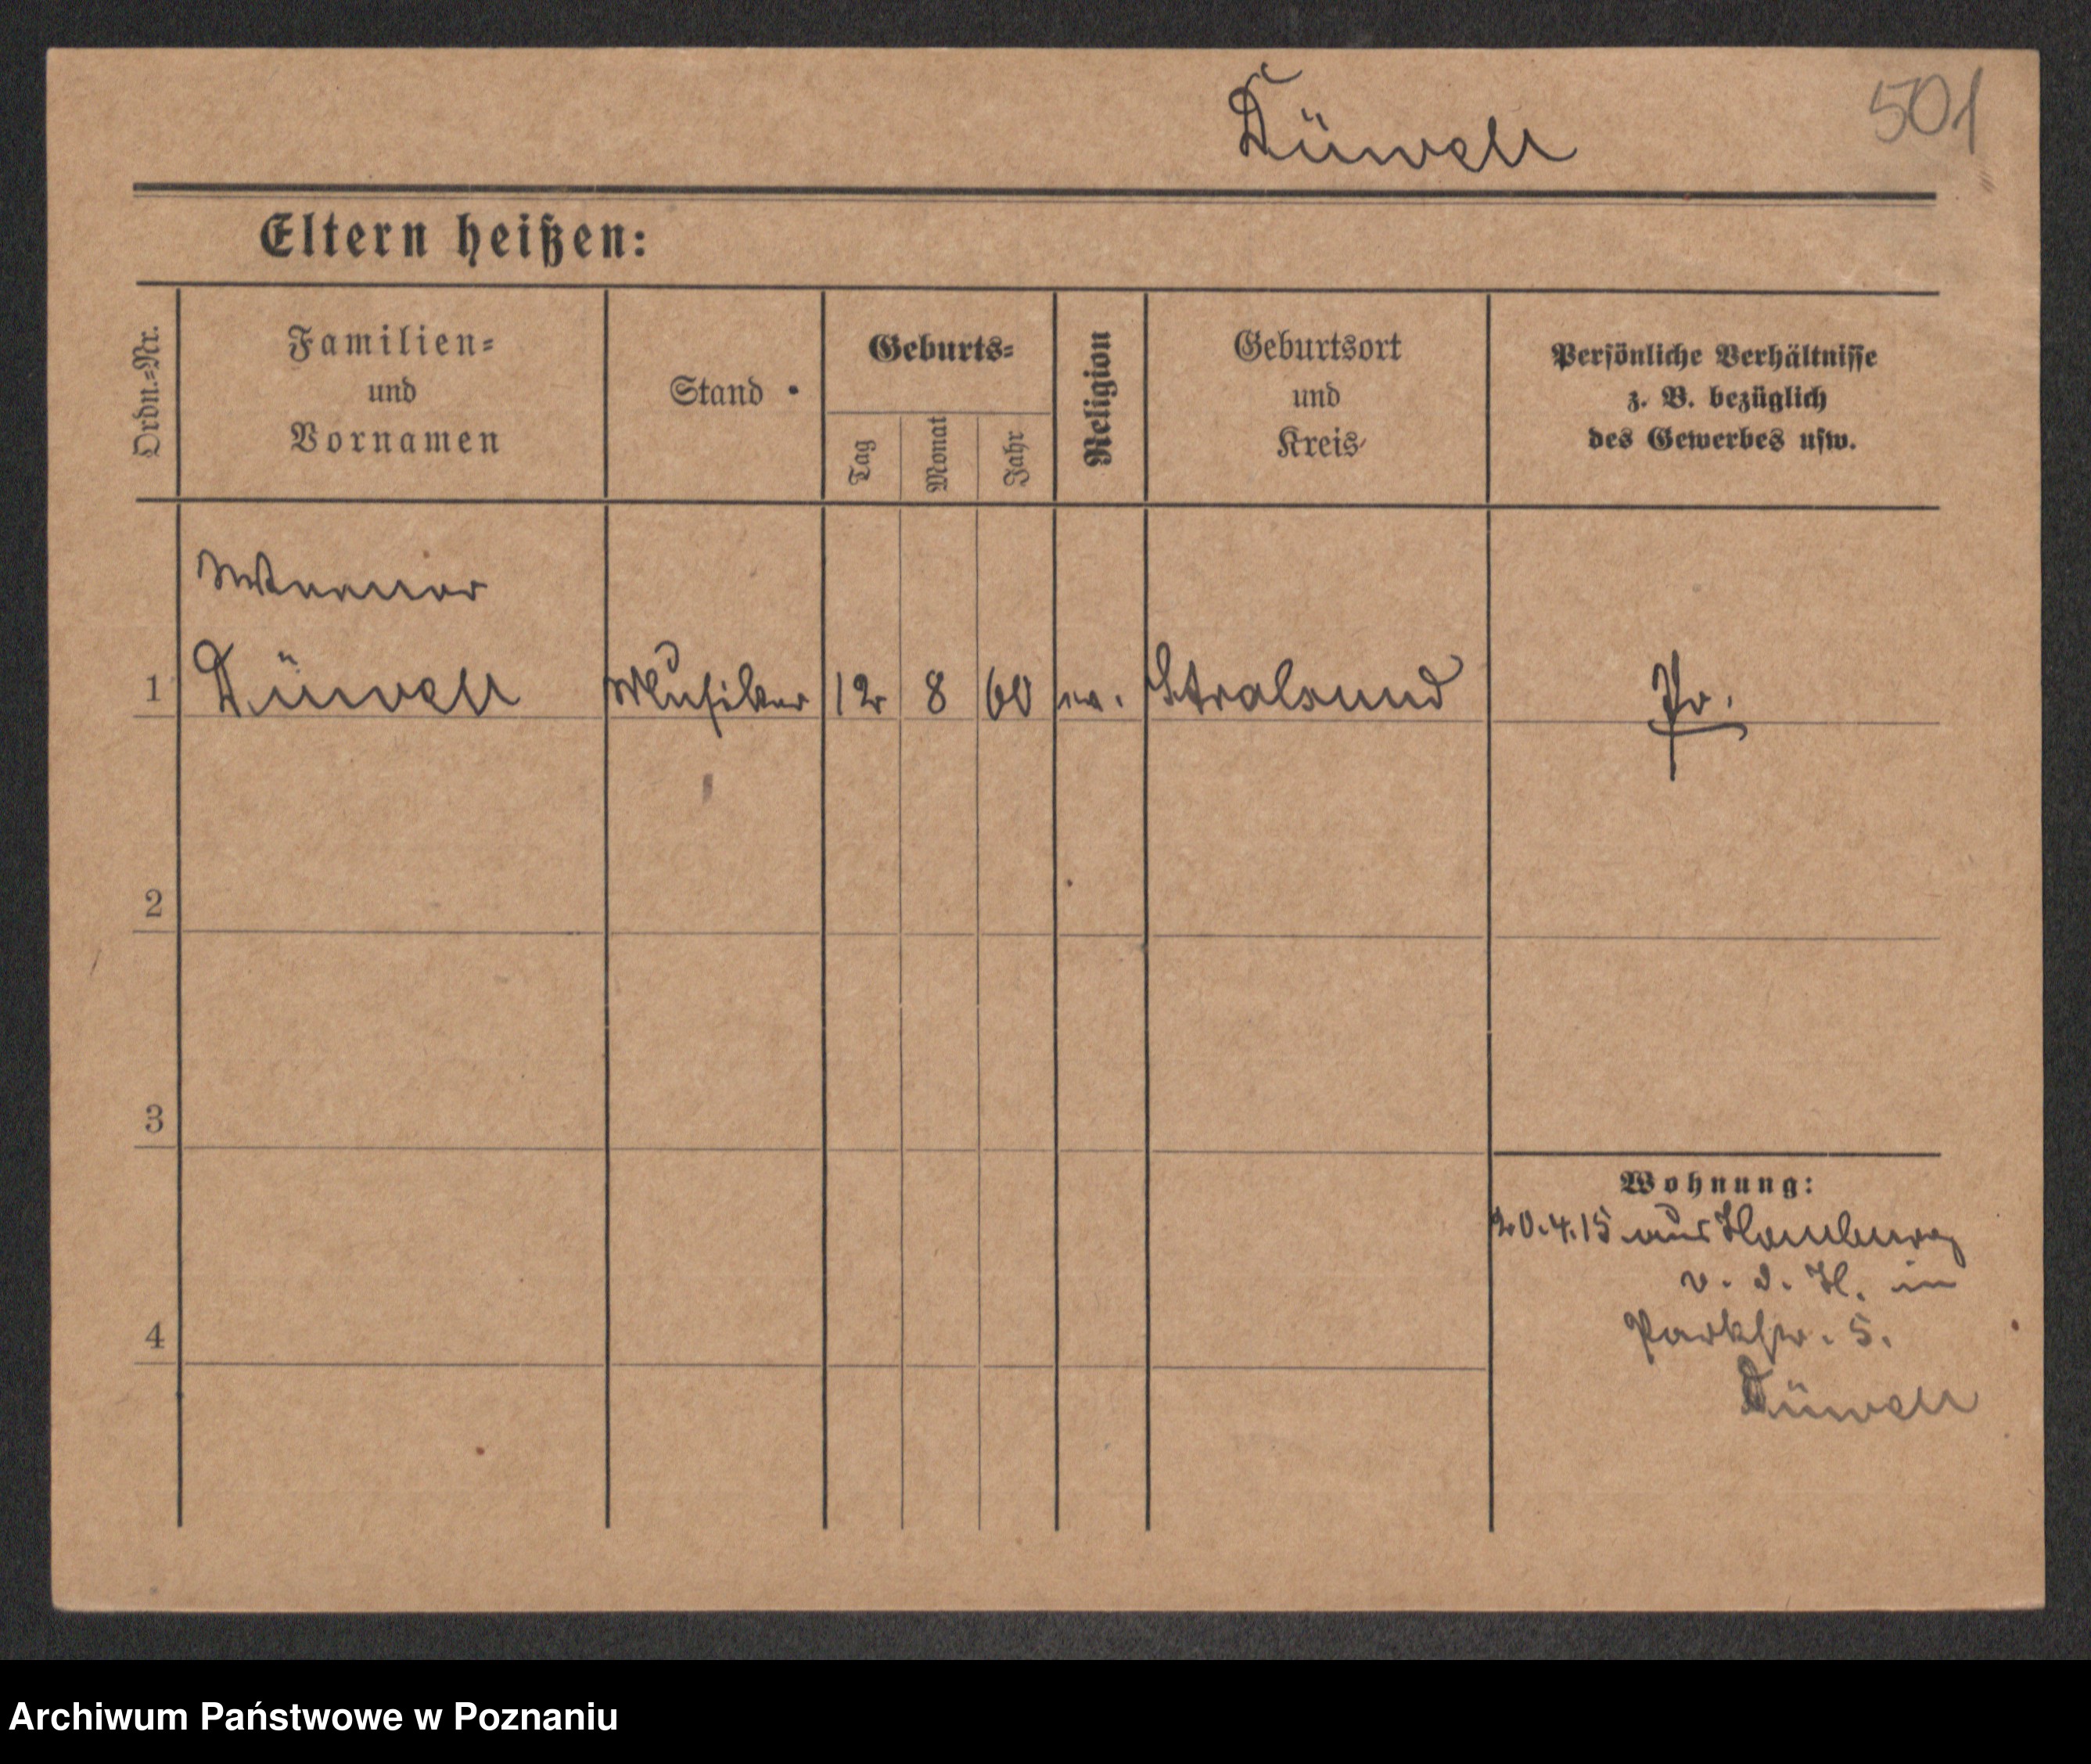 Düwell
501
Eltern heißen:
Ordn.=Nr.
Familien=
und
Vornamen
Stand
Geburts=
Tag
Monat
Jahr
Religion
Geburtsort
und
Kreis
Persönliche Verhältnisse
z. B. bezüglich
des Gewerbes usw.
1 Düwell Musiker 12 8 60 Stralsund Pr.
2
3
4
Wohnung:
20.4.15 aus Homburg
v. d. H. in
Parkstr. 5.
Düwell
Archiwum Państwowe w Poznaniu